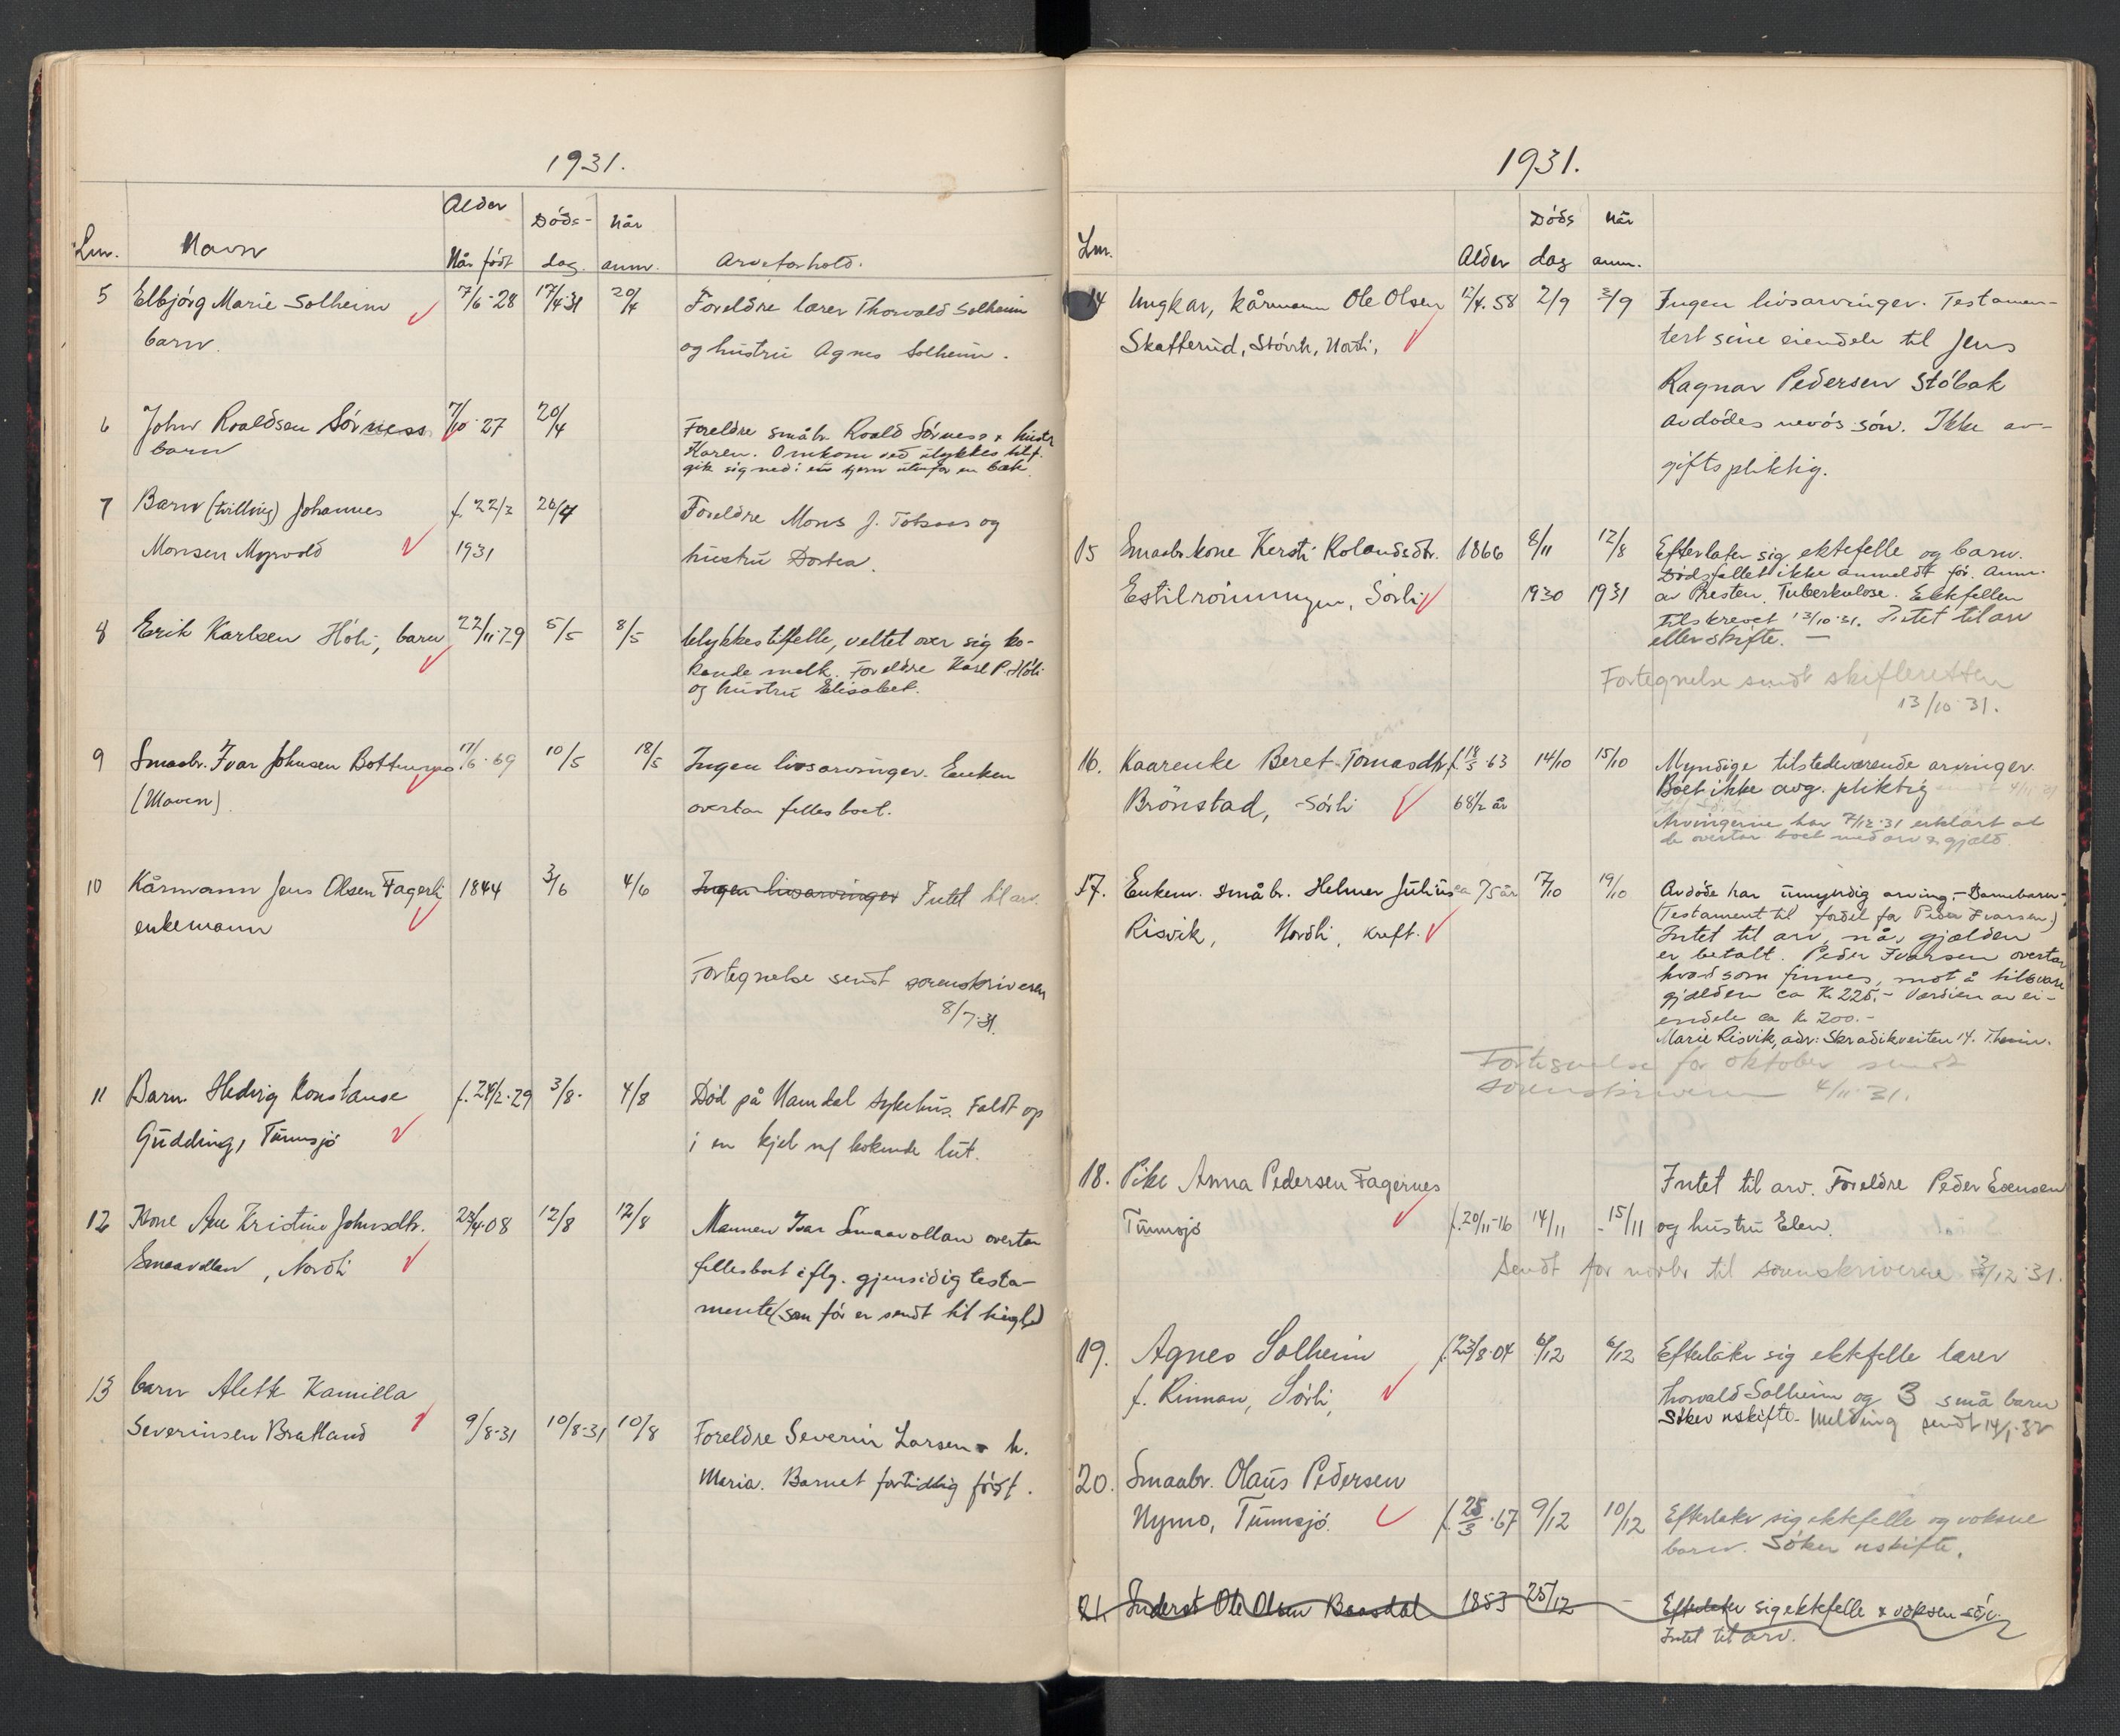 1931.
Lnr. Navn Alder Når født Døds-dag. Når anm. Arveforhold.
5 Elbjørg Marie Solheim 7/6-28 17/4 31 20/4 Foreldre lærer Thorvald Solheim
barn. og hustru Agnes Solheim.
6 John Roaldsen Sørness 7/10-27 20/4 Foreldre småbr. Roald Sørness & hustr
barn Karen. Omkom ved ulykkestilf.
gik sig ned i utenfor en bæk.
7 Barn (tvilling) Johannes f. 22/2 26/4 Foreldre Mons J. og
Monsen Myrvold 1931 hustru Dortea.
8 Erik Karlsen Høli, barn 22/11-29 5/5 8/5 Ulykkestilfelle, veltet over sig ko-
kende melk. Foreldre Karl P. Høli
og hustru Elisabet.
9 Smaabr. Ivar Johnsen 17/6-69 10/5 18/5 Ingen livsarvinger. Enken
overtar fellesboet.
10 Kårmann Jens Olsen Fagerli 1844 3/6 4/6 Ingen livsarvinger Intet til arv.
enkemann
Fortegnelse sendt sorenskriveren
8/7-31.
11 Barn Hedvig Konstanse f. 24/2-29 3/8- 4/8 Død på Namdal sykehus. Faldt op
Gudding, Tunnsjø i en kjel m/ kokende lut.
12 Kone Ane Kristine Johnsdtr. 08 12/8 12/8 Mannen Ivar Smaavollan overtar
Smaavollan, Nordli fellesboet iflg. gjensidig testa-
mente (som før er sendt til tingl.)
13 barn Aleth Kamilla
Severinsen Bratland 9/8-31 10/8-31 10/8 Foreldre Severin Larsen & h.
Maria. Barnet fortidlig født.
1931.
Lnr. Alder Døds dag Når anm.
14 Ungkar, kårmann Ole Olsen 12/4.58 2/9 3/9 Ingen livsarvinger. Testamen-
Skafterud, Nordli, tert sine eiendele til Jens
Ragnar Pedersen Støbak
avdødes nevøs søn. Ikke av-
giftspliktig.
15 Smaabr.kone Kersti Rolandsdtr. 1866 8/11 12/8 Efterlater sig ektefelle og barn.
Dødsfallet ikke anmeldt før. Anm.
Estilrönningen, Sørli 1930 1931 av Presten. Tuberkulose. Ektefellen
tilskrevet 13/10-31. Intet til arv
eller skifte. —
Fortegnelse sendt skifteretten
13/10 31.
16. Kaarenke Beret Tomasdtr f. 18/5-63 14/10 15/10 Myndige tilstedeværende arvinger.
Brönstad, Sørli 68½ år Boet ikke avg. pliktig
Arvingerne har 7/12-31 erklært at
de overtar boet med arv & gjæld.
17. Enkem. småbr. Helmer Julius ca 75 år 17/10 19/10 Avdøde har umyndig arving, - Barnebarn -,
(Testament til fordel for Peder Ivarsen)
Risvik, Nordli, kreft. Intet til arv, når gjælden
er betalt. Peder Ivarsen overtar
hvad som finnes, mot å tilsvare
gjælden ca Kr. 225,- Verdien av ei-
endele ca Kr 200.-
Marie Risvik, adr: Skradikveiten 14. T.heim.
Fortegnelse for oktober sendt
sorenskriveren 4/11-31.
18. Pike Anna Pedersen Fagernes Intet til arv. Foreldre Peder Evensen
Tunnsjø f. 20/11-16 14/11 - 15/11 og hustru Elen.
Sendt for novbr til sorenskriveren 3/12-31.
19. Agnes Solheim f. 23/8-04 6/12 6/12 Efterlater sig ektefelle lærer
f. Rinnan, Sørli, Thorvald Solheim og 3 små barn
Søker uskifte. Melding sendt 14/1-32
20. Smaabr. Olaus Pedersen
Nymo, Tunnsjø. f. 25/3-67 9/12 10/12 Efterlater sig ektefelle og voksne
barn. Søker uskifte.
21. Inderst Ole Olsen 1853 25/12 - Efterlater sig ektefelle & voksen søn.
Intet til arv.